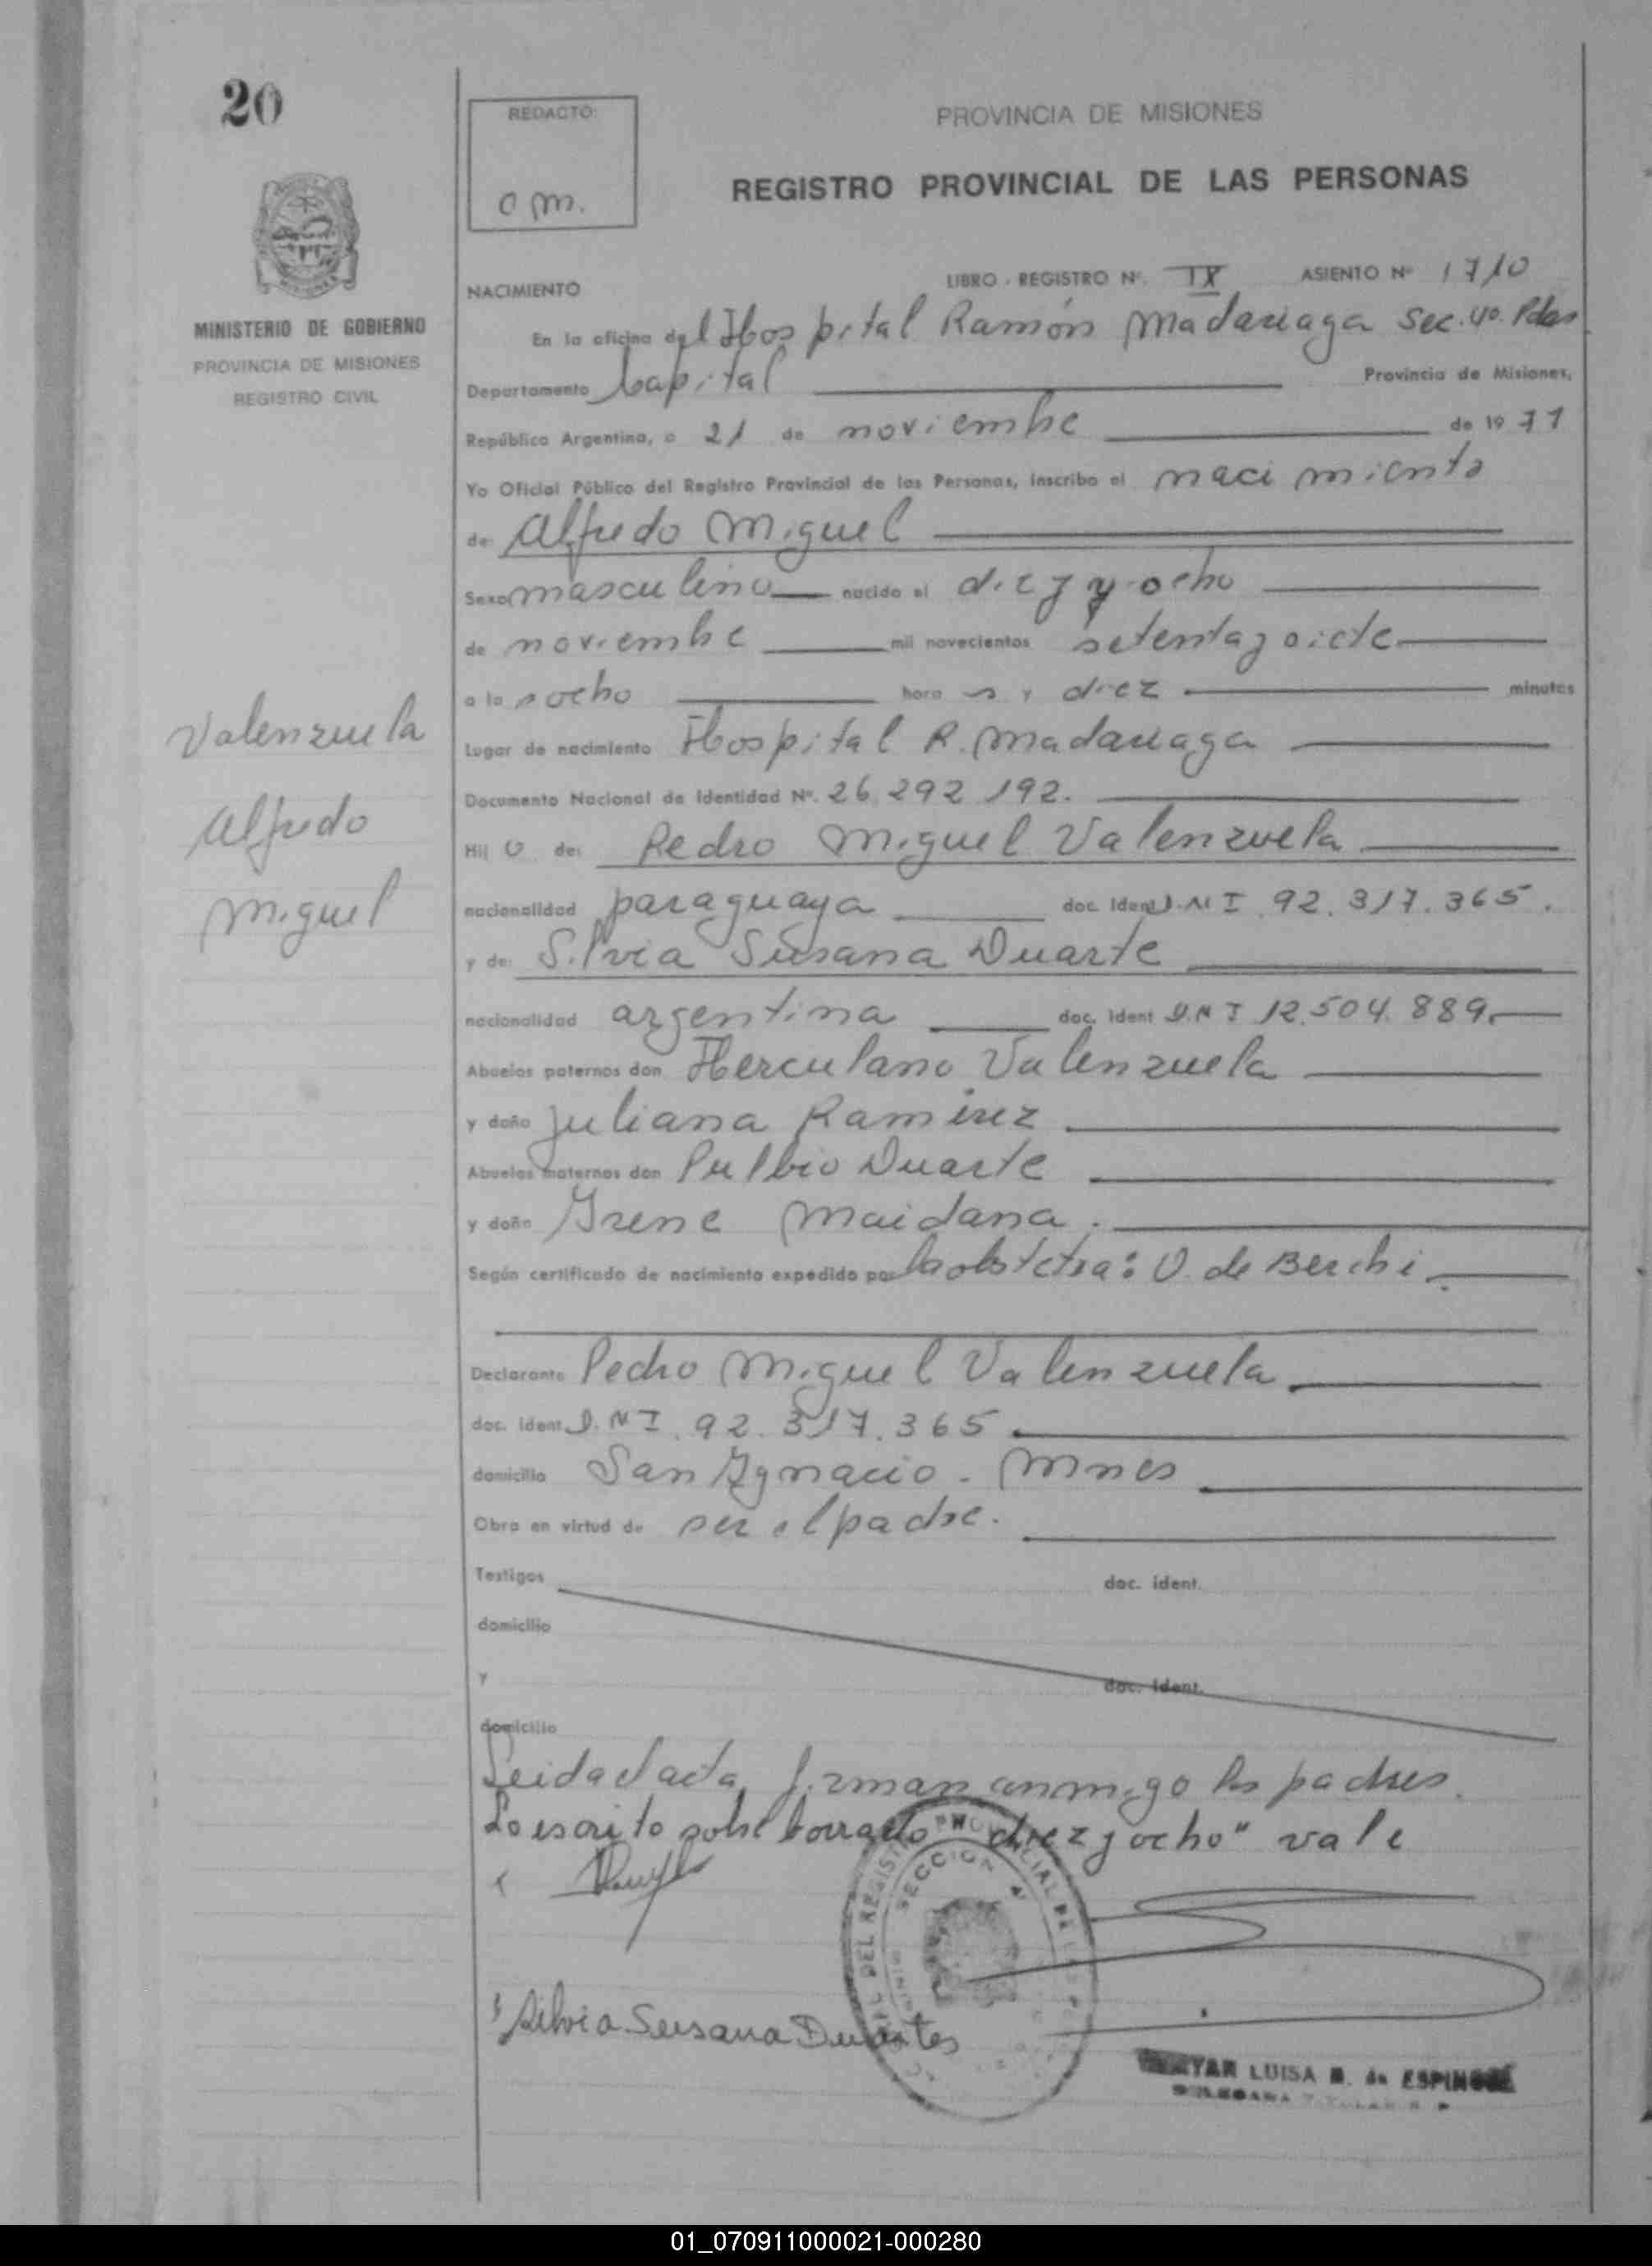 20
REDACTO:
O m.
PROVINCIA DE MISIONES
REGISTRO PROVINCIAL DE LAS PERSONAS
MINISTERIO DE GOBIERNO
PROVINCIA DE MISIONES
REGISTRO CIVIL
NACIMIENTO
LIBRO - REGISTRO Nº. IX ASIENTO Nº 1710
En la oficina del Hospital Ramón Madariaga Sec. 4º. Pdas
Departamento Capital Provincia de Misiones,
República Argentina, a 21 de noviembre de 1977
Yo Oficial Público del Registro Provincial de las Personas, inscribo el nacimiento
de Alfredo Miguel
Sexo masculino nacido el diez y ocho
de noviembre mil novecientos setenta y siete
a las ocho hora s y diez minutos
Lugar de nacimiento Hospital R. Madariaga
Documento Nacional de Identidad Nº. 26.292.192.
Hij o de: Pedro Miguel Valenzuela
nacionalidad paraguaya doc. Ident D.N I. 92.317.365.
y de: Silvia Susana Duarte
nacionalidad argentina doc. ident D.N I 12.504.889.
Abuelos paternos don Herculano Valenzuela
y doña Juliana Ramirez
Abuelos maternos don Pulbio Duarte
y doña Irene Maidana.
Según certificado de nacimiento expedido por la obstetra: O. de Berchi
Declarante Pedro Miguel Valenzuela
doc. ident D. N I. 92.317.365
domicilio San Ignacio - Mnes
Obra en virtud de ser el padre.
Testigos doc. ident.
domicilio
y doc. ident.
domicilio
Leida el acta, firman conmigo los padres.
Lo escrito sobre borrado "diez y ocho" vale
Valenzuela
Alfredo
Miguel
Silvia Susana Duartes
SECCION 4
LUISA de ESPINOSA
01_070911000021-000280